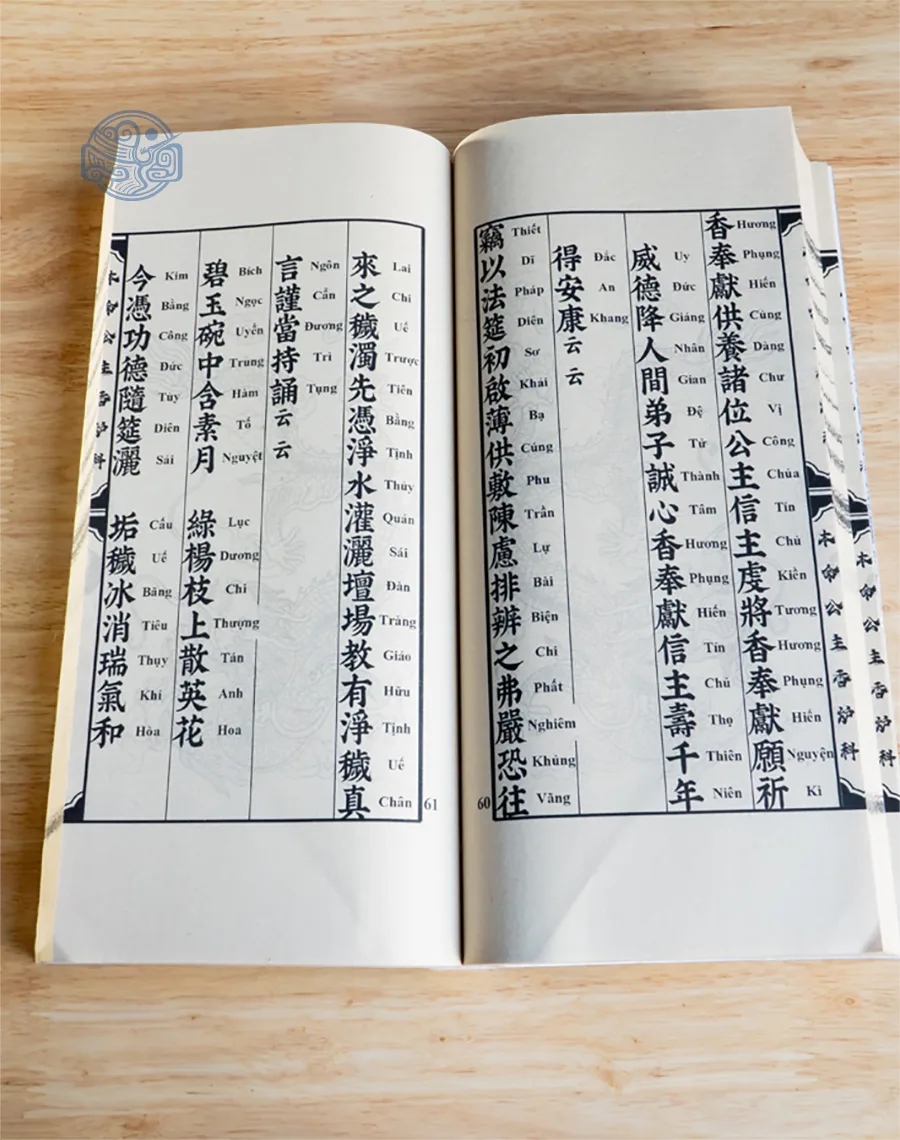 香奉獻供養諸位公主信主虔將香奉獻願祈
Hương Phụng Hiến Cúng Dàng Chư Vị Công Chúa Tín Chủ Kiền Tương Hương Phụng Hiến Nguyện Kì
威德降人間弟子誠心香奉獻信主壽千年
Uy Đức Giáng Nhân Gian Đệ Tử Thành Tâm Hương Phụng Hiến Tín Chủ Thọ Thiên Niên
得安康云云
Đắc An Khang
竊以法筵初啟薄供敷陳慮排辨之弗嚴恐往
Thiết Dĩ Pháp Diên Sơ Khải Bạ Cúng Phu Trần Lự Bài Biện Chi Phất Nghiêm Khủng Vãng
60
來之穢濁先憑淨水灌灑壇場教有淨穢真
Lai Chi Uế Trược Tiên Bằng Tịnh Thủy Quán Sái Đàn Tràng Giáo Hữu Tịnh Uế Chân
言謹當持誦云云
Ngôn Cẩn Đương Trì Tụng
碧玉碗中含素月 綠楊枝上散英花
Bích Ngọc Uyển Trung Hàm Tố Nguyệt Lục Dương Chi Thượng Tán Anh Hoa
今憑功德隨筵灑 垢穢冰消瑞氣和
Kim Bằng Công Đức Tùy Diên Sái Cấu Uế Băng Tiêu Thụy Khí Hòa
61
本命公主香炉科
本命公主香炉科